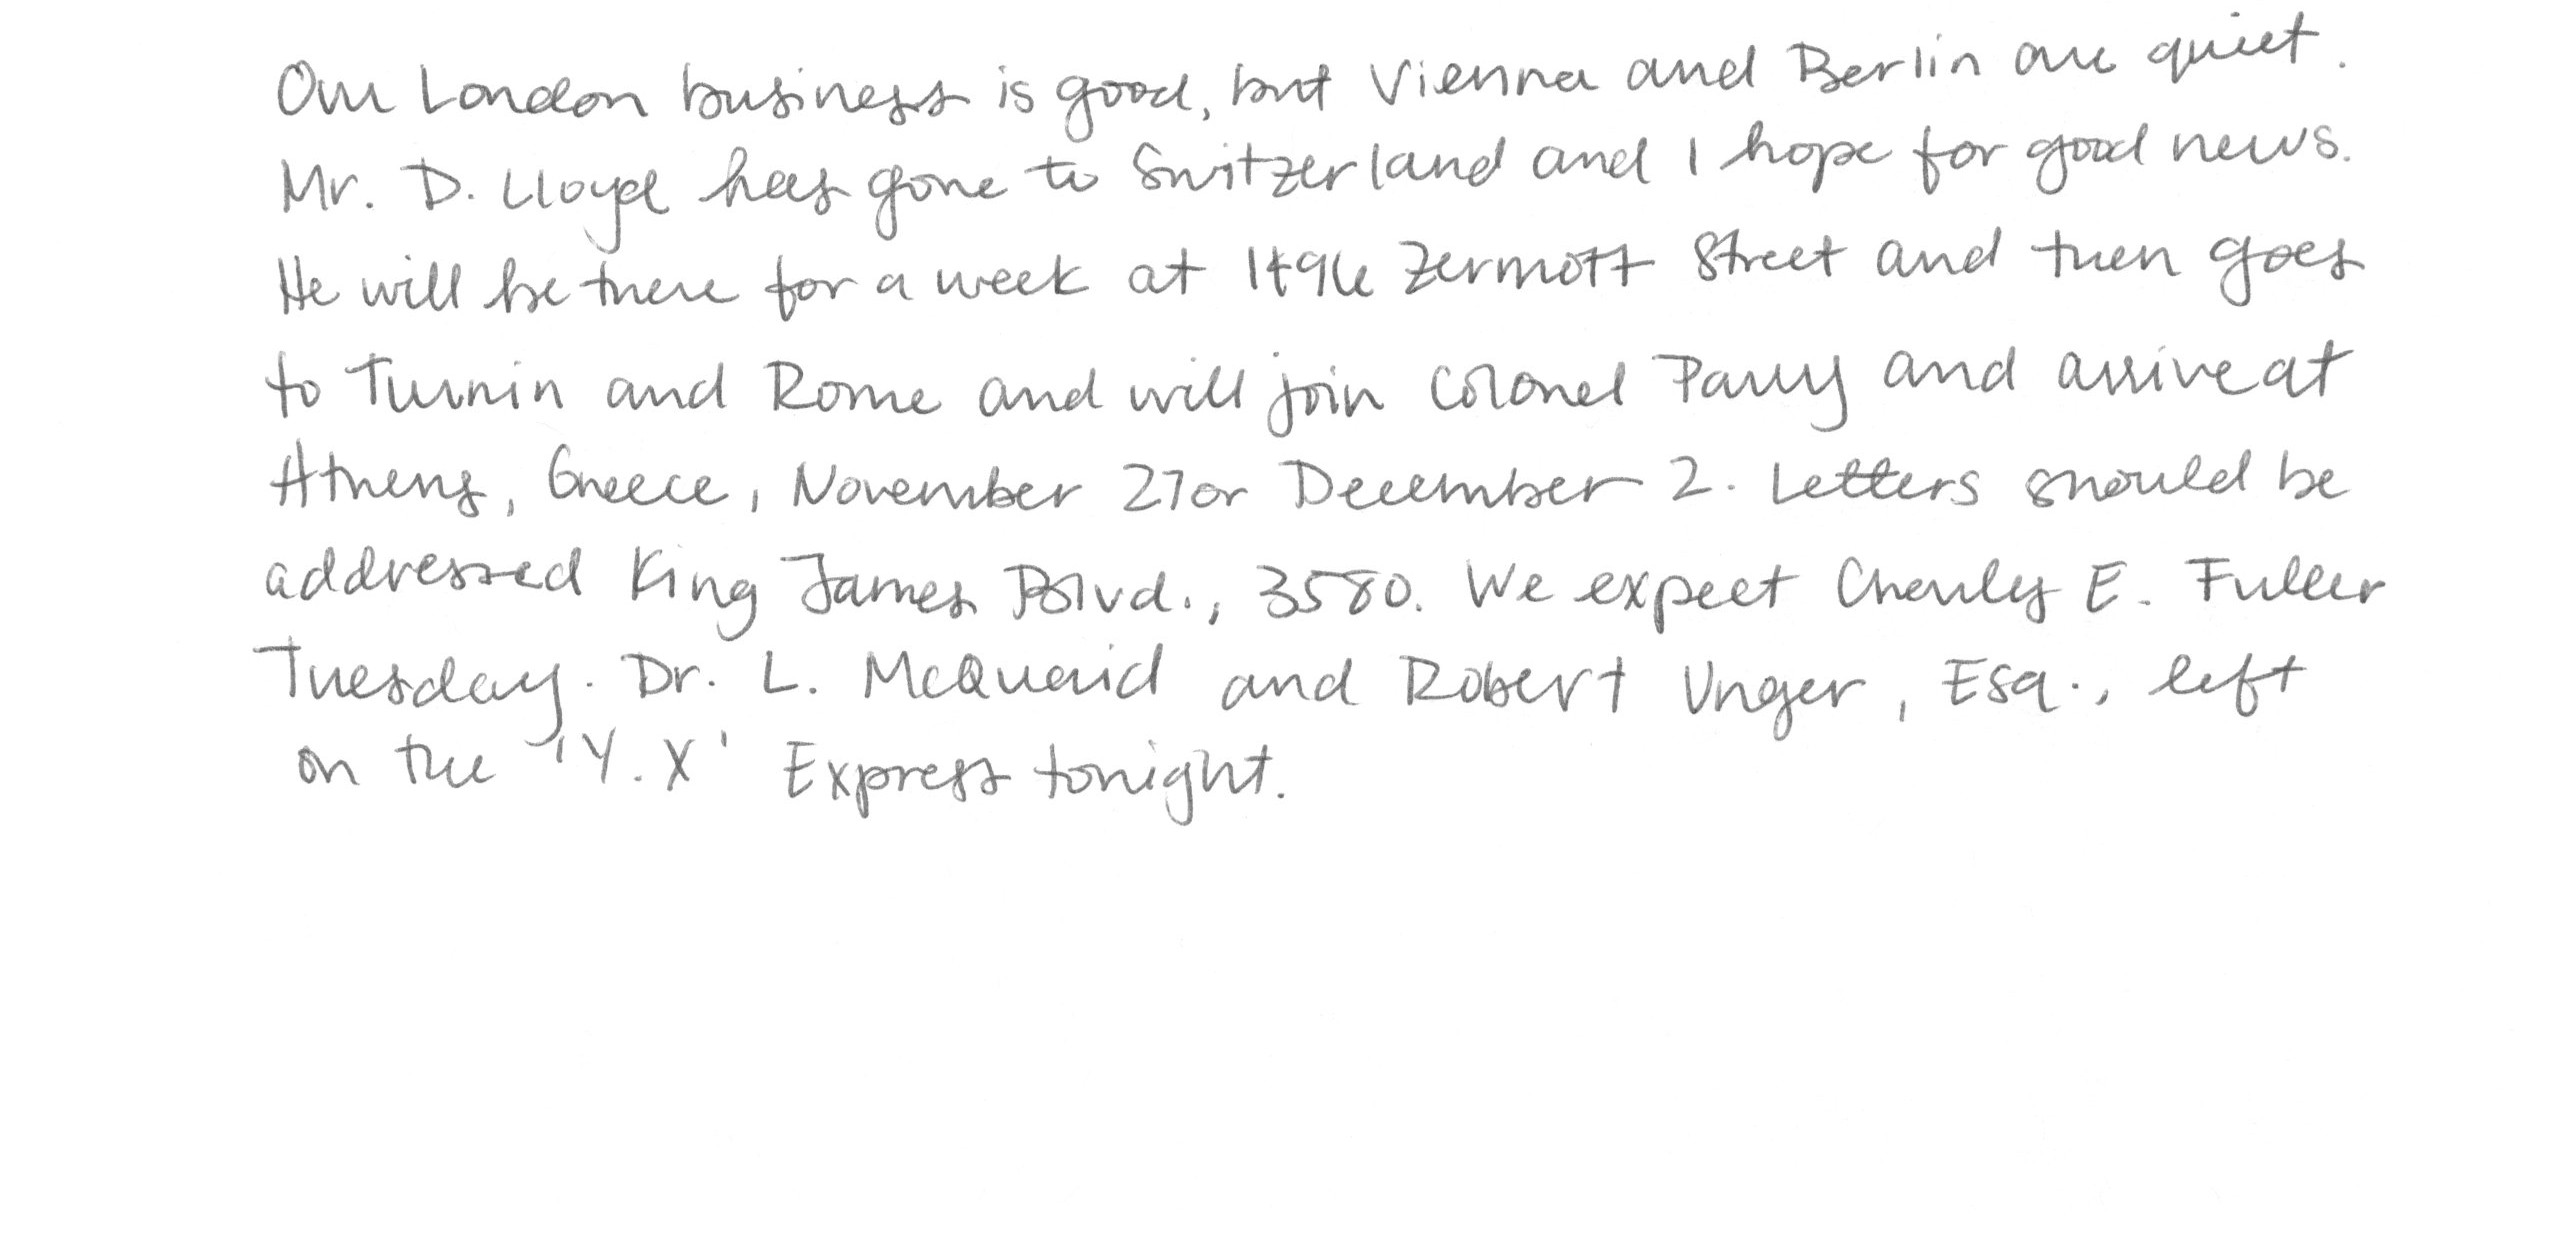 Our London business is good, but Vienna and Berlin are quiet.
Mr. D. Lloyd has gone to Switzerland and I hope for good news.
He will be there for a week at 1496 Zermott Street and then goes
to Turnin and Rome and will join Colonel Parry and arrive at
Athens, Greece, November 27 or December 2. Letters should be
addressed King James Blvd., 3580. We expect Charly E. Fuller
Tuesday. Dr. L. McQuaid and Robert Unger, Esq., left
on the 'Y.X' Express tonight.